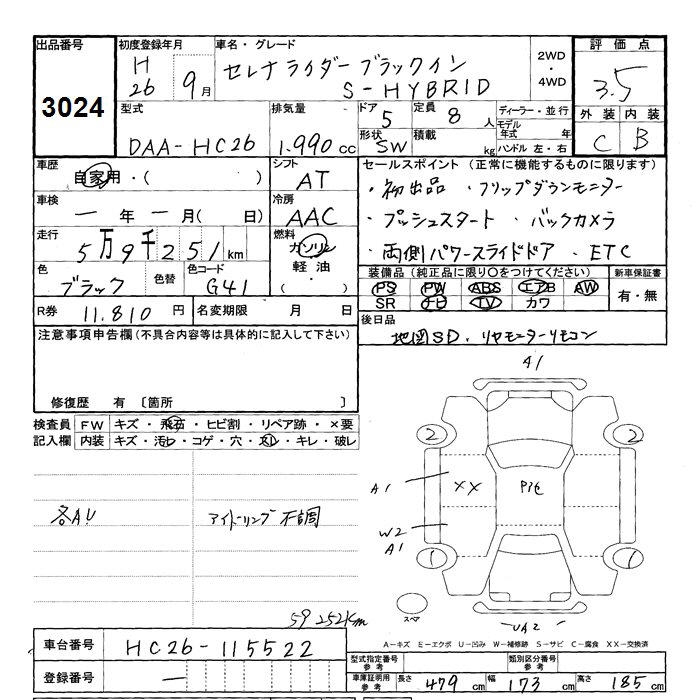 出品番号 3024
初度登録年月 H 26 9月
車名・グレード セレナライダーブラックイン
S-HYBRID
2WD
・
4WD
評価点
3.5
型式 DAA-HC26
排気量 1.990 cc
ドア 5
定員 8 人
ディーラー・並行
モデル年式 年
外装 内装
C B
形状 SW
積載 kg
ハンドル 左・右
車歴 自家用・( )
シフト AT
セールスポイント (正常に機能するものに限ります)
・初出品 ・フリップダウンモニター
車検 一年一月( 日)
冷房 AAC
・プッシュスタート ・バックカメラ
走行 5万9千251km
燃料 ガソリン
軽油
・
( )
・両側パワースライドドア ・ETC
色 ブラック
色替
色コード G41
装備品 (純正品に限り○をつけてください)
新車保証書
PS PW ABS エアB AW
有・無
SR ナビ TV カワ
R券 11.810 円
名変期限 月 日
後日品
地図SD.リヤモニターリモコン
注意事項申告欄(不具合内容等は具体的に記入して下さい)
修復歴 有 〔箇所 〕
検査員記入欄
FW キズ・飛石・ヒビ割・リペア跡・×要
内装 キズ・汚れ・コゲ・穴・スレ・キレ・破レ
A1
2 2
A1 XX Pit
各AU アイドーリング不調
W2
A1
1 1
スペア
UA2
59252km
A-キズ E-エクボ U-凹み W-補修跡 S-サビ C-腐食 XX-交換済
車台番号 HC26-115522
型式指定番号 参考
類別区分番号 参考
登録番号 —
車庫証明用 参考
長さ 479 cm 幅 173 cm 高さ 185 cm